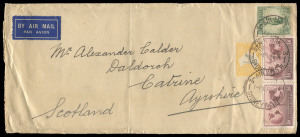 BY AIR MAIL
PAR AVION
Mr Alexander Calder
Daldorch
Catrine
Ayrshire
Scotland